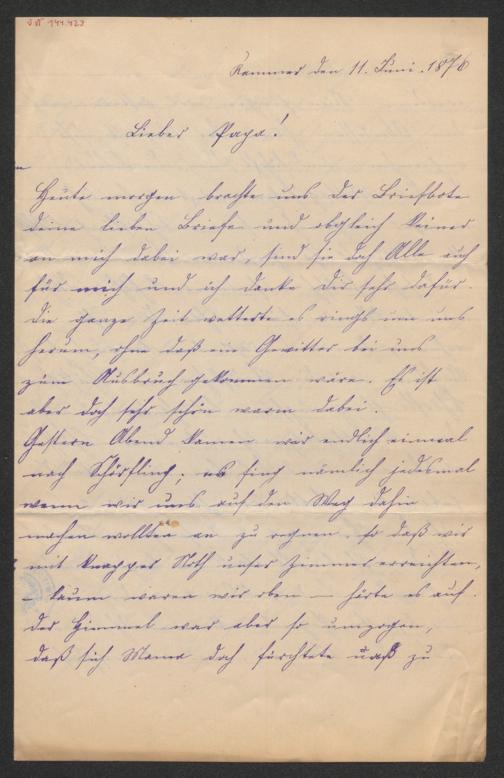 Kammer den 11. Juni. 1876
Lieber Papa!
Heute morgen brachte uns der Briefbote
deine lieben Briefe und obgleich keiner
an mich dabei war, sind sie doch Alle auch
für mich und ich danke Dir sehr dafür.
Die ganze Zeit wetterte es rings um uns
herum, ohne daß ein Gewitter bei uns
zum Ausbruch gekommen wäre. Es ist
aber doch sehr schön warm dabei.
Gestern Abend kamen wir endlich einmal
nach Schörfling; es fing nämlich jedesmal
wenn wir uns auf den Weg dahin
machen wollten an zu regnen. so daß wir
mit knapper Noth unser Zimmer erreichten,
– kaum waren wir oben – hörte es auf.
Der Himmel war aber so umzogen,
daß sich Mama doch fürchtete naß zu